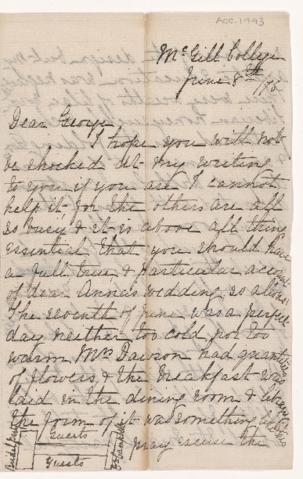 ACC. 1943
McGill College
June 8th /76
Dear George,
I hope you will not
be shocked at my writing
to you if you are I cannot
help it for the others are all
so busy & it is above all things
essential that you should have
a full true & particular account
of dear Anna's wedding so allons
The seventh of June was a perfect
day neither too cold nor too
warm Mrs Dawson had quantities
of flowers & the breakfast was
laid in the dining room &
the form of it was something like this
Guests
pray excuse the
Guests